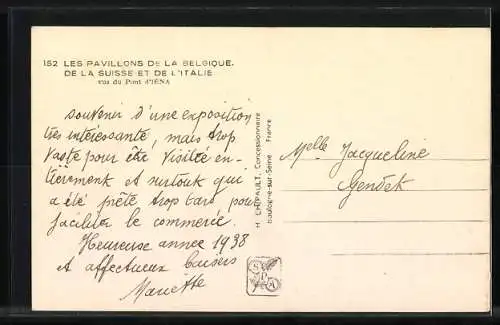 152 LES PAVILLONS DE LA BELGIQUE.
DE LA SUISSE ET DE L'ITALIE
vus du Pont d'IÉNA
souvenir d'une exposition
très intéressante, mais trop
vaste pour être visitée en-
tièrement et surtout qui
a été prête trop tard pour
faciliter le commerce.
Heureuse année 1938
et affectueux baisers
Mariette
H. CHIPAULT, Concessionnaire
Boulogne-sur-Seine France
Melle Jacqueline
Gendet